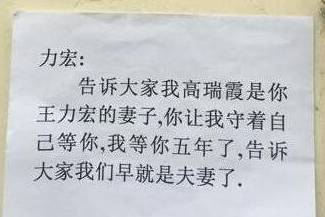 力宏:
告诉大家我高瑞霞是你
王力宏的妻子,你让我守着自
己等你,我等你五年了,告诉
大家我们早就是夫妻了.